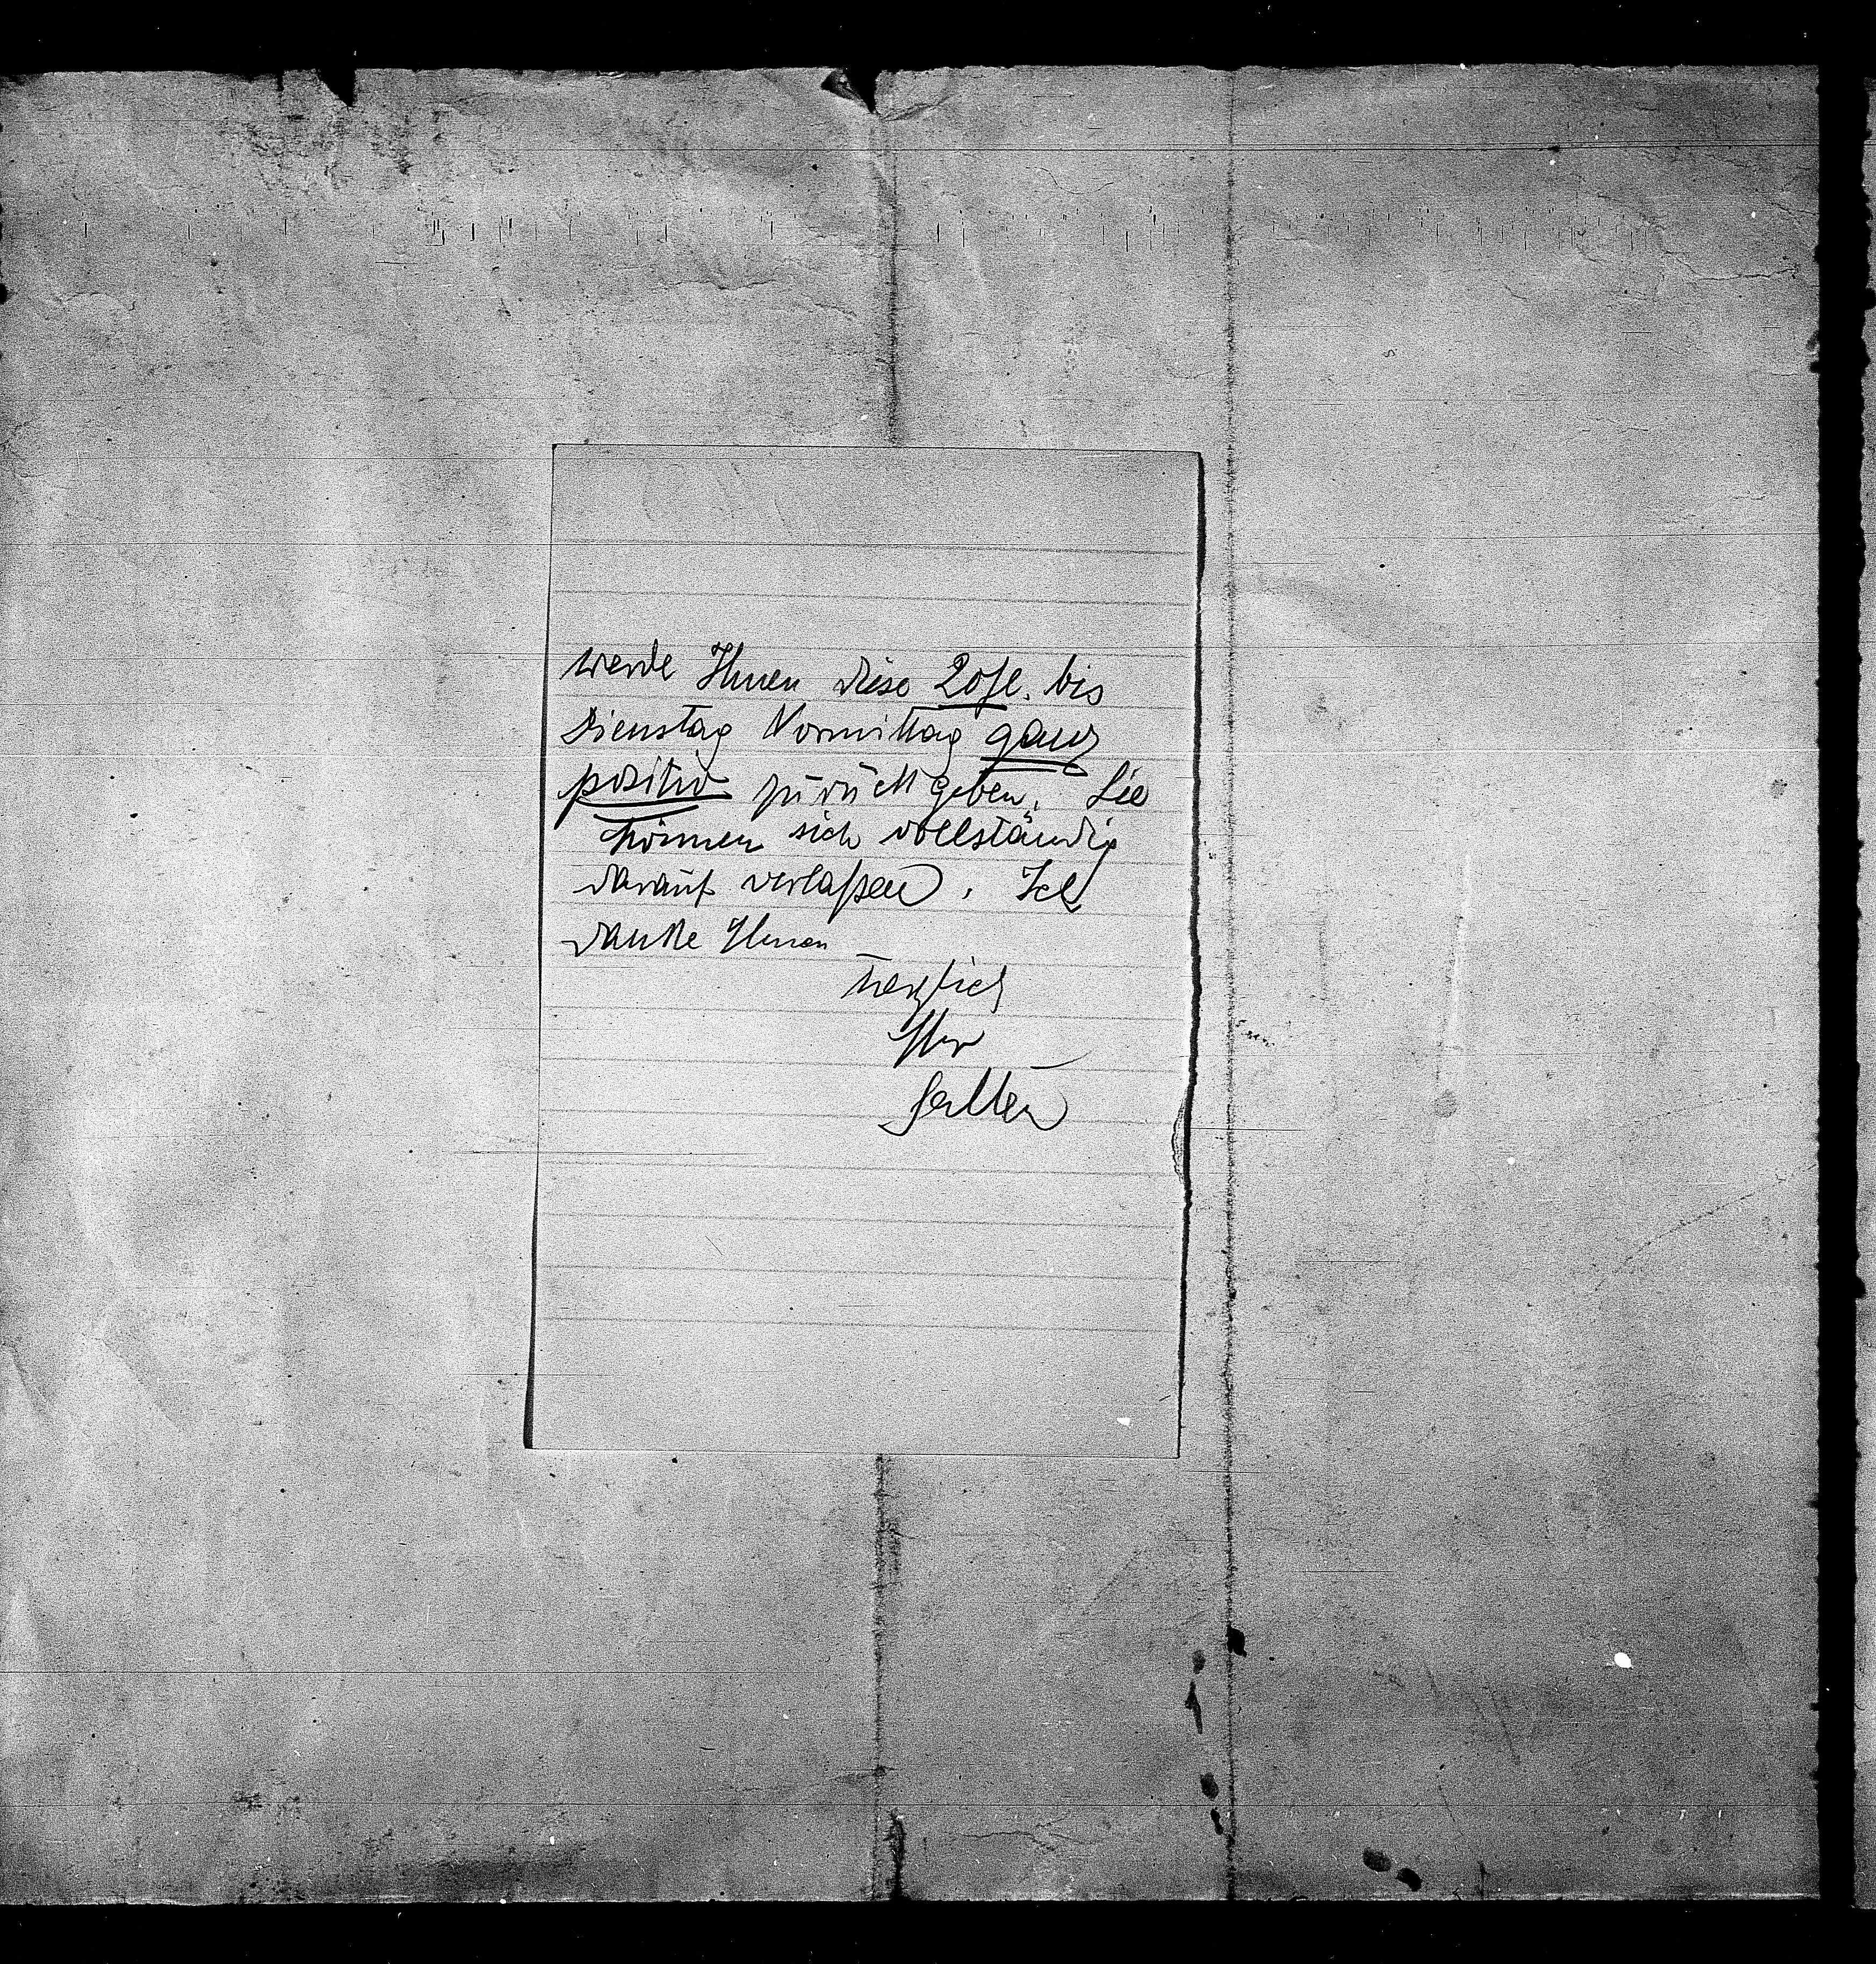 werde Ihnen diese 20fl. bis
Dienstag Vormittag ganz
positiv zurückgeben. Sie
können sich vollständig
darauf verlaßen. Ich
danke Ihnen
herzlich
Ihr
Salten